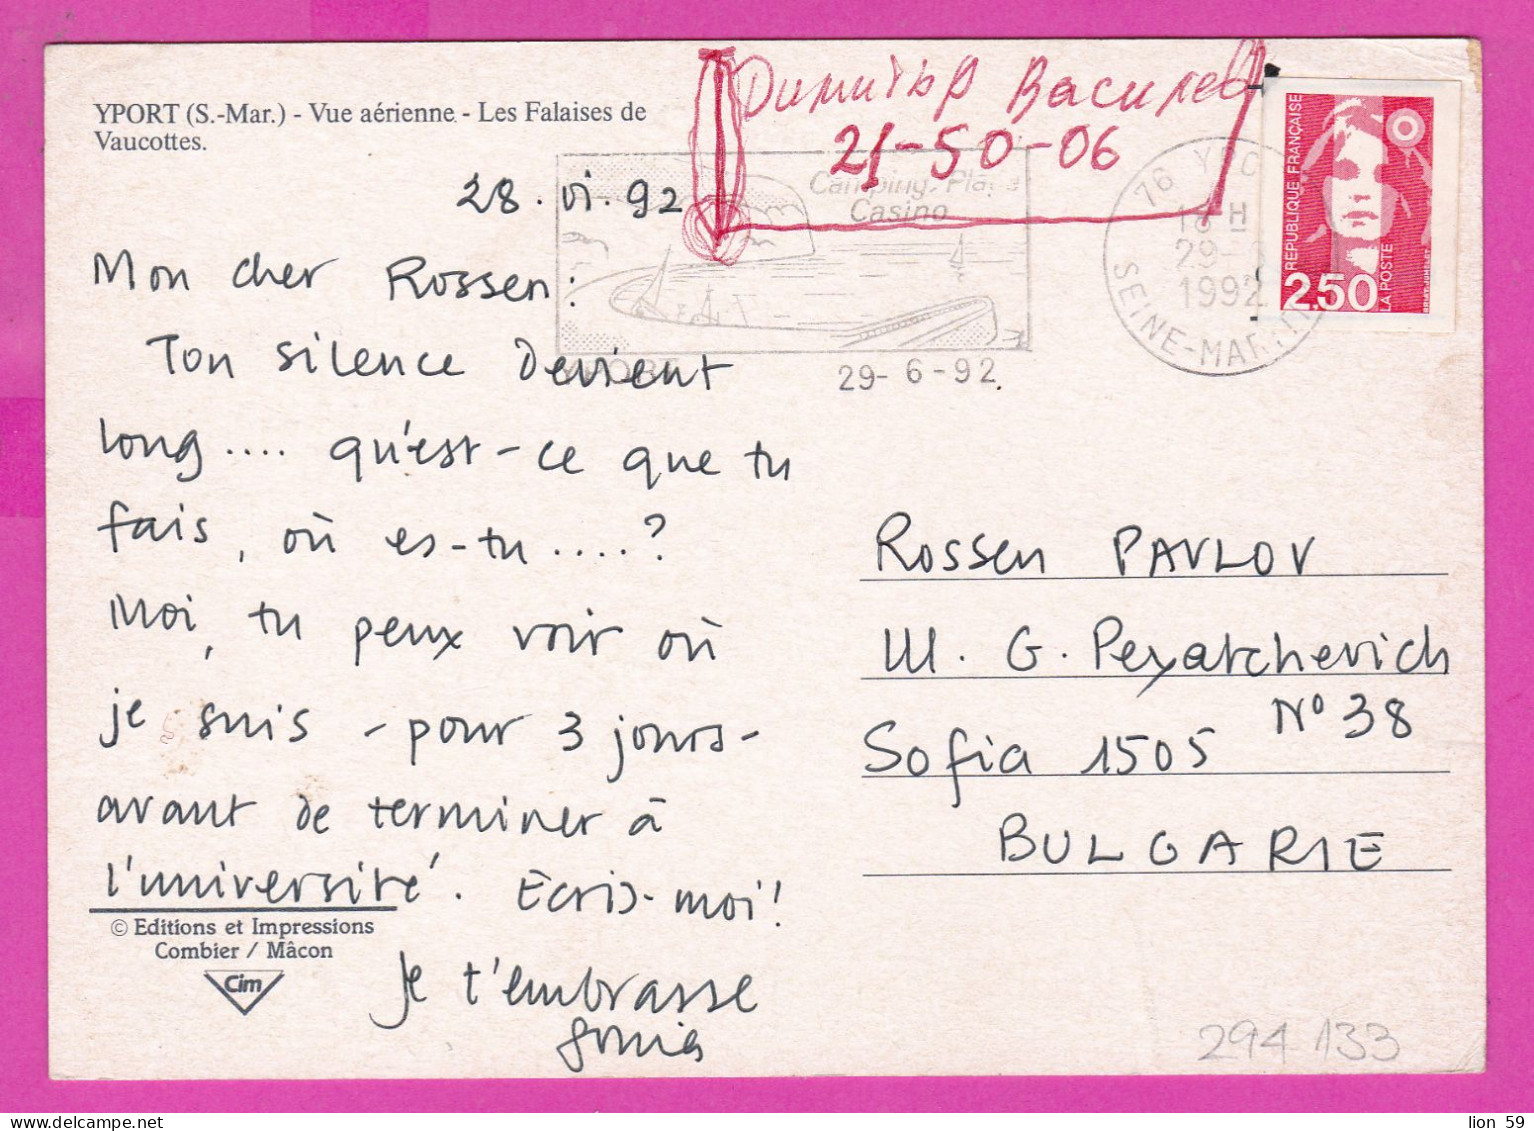 YPORT (S.-Mar.) - Vue aérienne - Les Falaises de
Vaucottes.
Димитър Василев
21-50-06
Camping, Plage
Casino
YPORT
29- 6 -92
76 YPO
18 H
29-
1992
SEINE-MARIT
REPUBLIQUE FRANÇAISE
LA POSTE
2,50
28. VI. 92
Mon cher Rossen :
Ton silence devient
long .... qu'est-ce que tu
fais, où es-tu ....?
Moi, tu peux voir où
je suis - pour 3 jours-
avant de terminer à
l'université. Ecris-moi!
Je t'embrasse
Sonia
© Editions et Impressions
Combier / Mâcon
Cim
Rossen PAVLOV
Ul. G. Peyatchevich
N° 38
Sofia 1505
BULGARIE
294133
lion 59